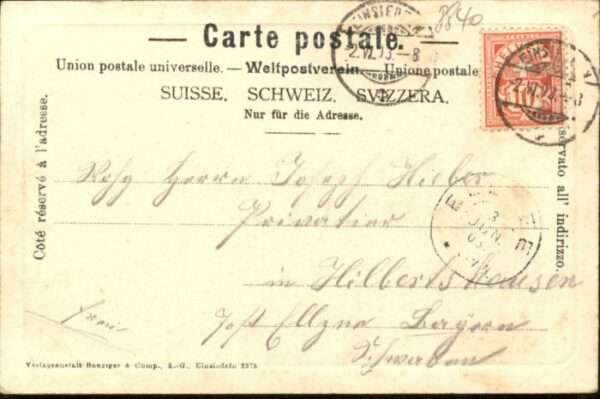 8840
— Carte postale. —
Union postale universelle. — Weltpostverein. — Unione postale
SUISSE. SCHWEIZ. SVIZZERA.
Nur für die Adresse.
Côté réservé à l'adresse.
servato all' indirizzo.
EINSIED
2.VI.03.-8
HELVETIA
Herrn Joseph Hieber
Privatier
in Hilbertshausen
Post Ellzee Bayern
Schwaben
JUN.
03
Verlagsanstalt Benziger & Comp., A.-G., Einsiedeln 2375